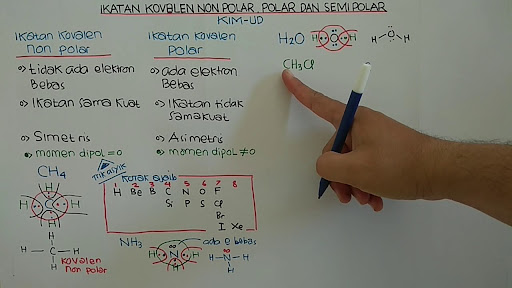 IKATAN KOVALEN NON POLAR, POLAR DAN SEMI POLAR
KIM-UD
Ikatan Kovalen
non polar
Ikatan Kovalen
polar
⇒ tidak ada elektron
Bebas
⇒ ada elektron
Bebas
⇒ Ikatan sama kuat
⇒ Ikatan tidak
sama kuat
⇒ Simetris
⇒ Asimetris
⇒ momen dipol = 0
⇒ momen dipol ≠ 0
H2O
H O H
H O H
CH3Cl
CH4
H
H C H
H
H
H C H
H
kovalen
non polar
Trik asyik
kotak ajaib
1 2 3 4 5 6 7 8
H Be B C N O F
Si P S Cl
Br
I Xe
NH3
ada e bebas
H N H
H
H-N-H
H